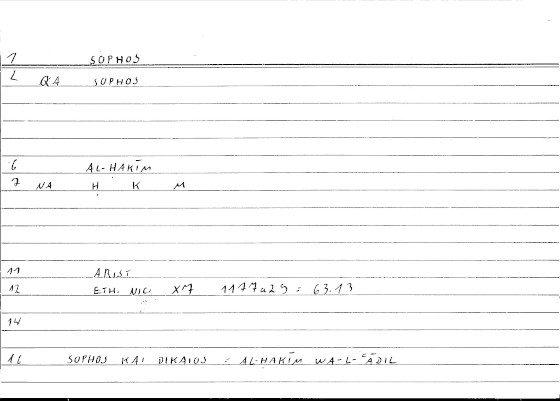 1 SOPHOS
2 QA SOPHOS
6 AL-ḤAKĪM
7 NA Ḥ K M
11 ARIST
12 ETH. NIC. X7 1177a29 = 63.13
14
16 SOPHOS KAI DIKAIOS = AL-ḤAKĪM WA-L-ʿĀDIL